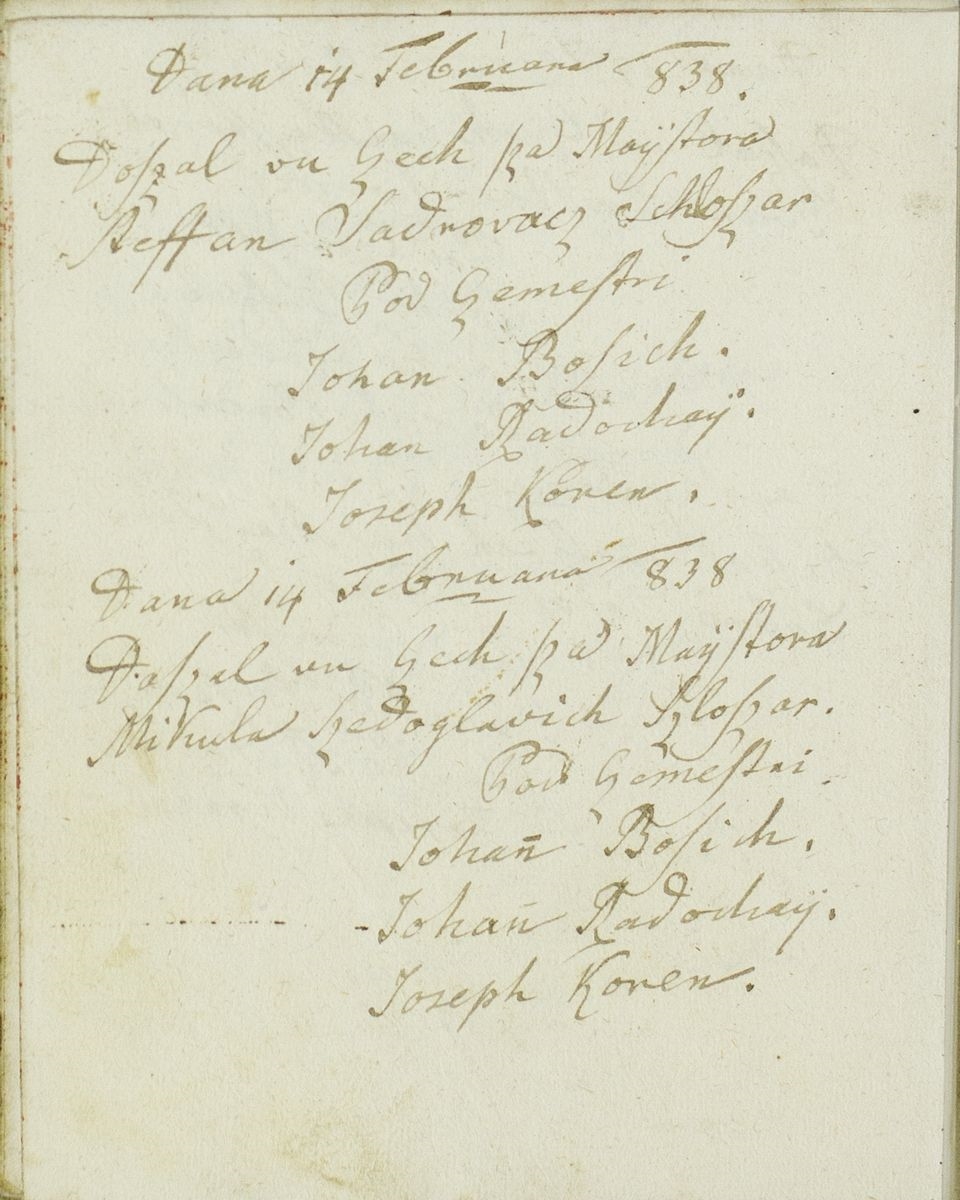 Dana 14 Februara 838.
Doszal vu Czech sza Maÿstora
Steffan Sadrovacz Schloszar
Pod Czemestri
Johan Bosich.
Johan Radochaÿ.
Joseph Koren.
Dana 14 Februara 838
Daszal vu Czech sza Maÿstora
Mikula Szedoglavich Szloszar.
Pod Czemestri.
Johan̄ Bosich.
Johan̄ Radochaÿ.
Joseph Koren.